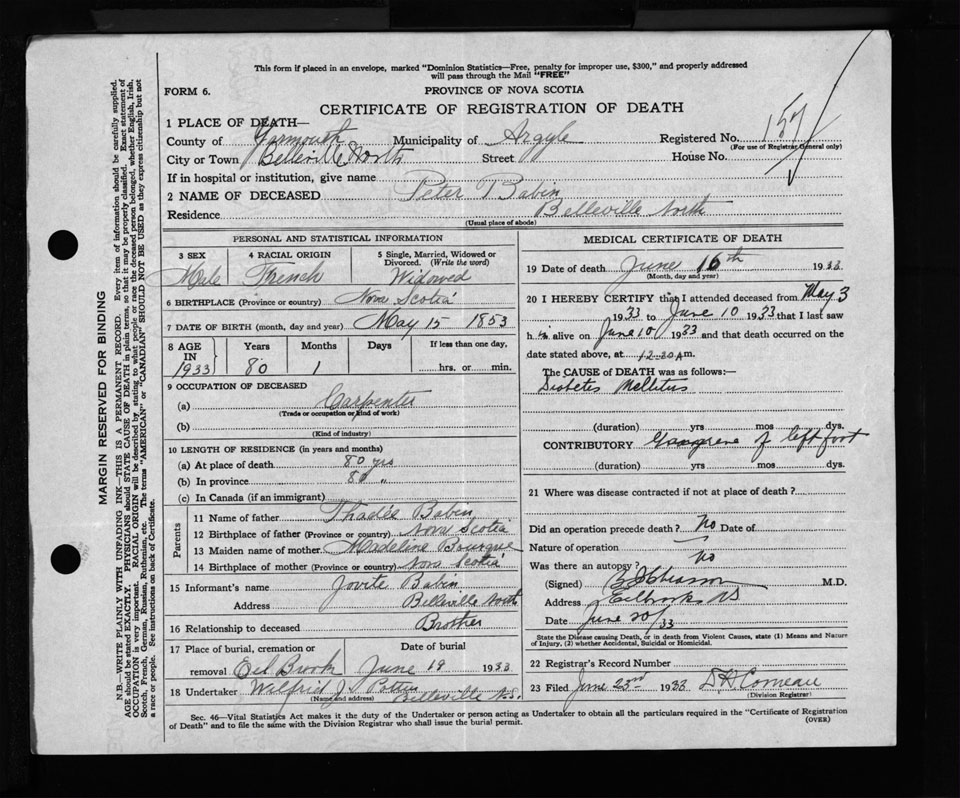 This form if placed in an envelope, marked "Dominion Statistics—Free, penalty for improper use, $300," and properly addressed
will pass through the Mail "FREE"
FORM 6.
PROVINCE OF NOVA SCOTIA
CERTIFICATE OF REGISTRATION OF DEATH
1 PLACE OF DEATH—
County of Yarmouth Municipality of Argyle Registered No. 157
(For use of Registrar General only)
City or Town Belleville North Street House No.
If in hospital or institution, give name
2 NAME OF DECEASED Peter Babin
Residence Belleville North
(Usual place of abode)
PERSONAL AND STATISTICAL INFORMATION
3 SEX 4 RACIAL ORIGIN 5 Single, Married, Widowed or
Divorced. (Write the word)
Male French Widowed
6 BIRTHPLACE (Province or country) Nova Scotia
7 DATE OF BIRTH (month, day and year) May 15 1853
8 AGE IN 1933 Years 80 Months 1 Days If less than one day,
hrs. or min.
9 OCCUPATION OF DECEASED
(a) Carpenter
(Trade or occupation or kind of work)
(b)
(Kind of industry)
10 LENGTH OF RESIDENCE (in years and months)
(a) At place of death 80 yrs
(b) In province 80 "
(c) In Canada (if an immigrant)
Parents
11 Name of father Thadée Babin
12 Birthplace of father (Province or country) Nova Scotia
13 Maiden name of mother Madeline Bourque
14 Birthplace of mother (Province or country) Nova Scotia
15 Informant's name Jovite Babin
Address Belleville North
16 Relationship to deceased Brother
17 Place of burial, cremation or Date of burial
removal Eel Brook June 19 1933
18 Undertaker Wilfrid J Pottier
(Name and address) Belleville N.S.
MEDICAL CERTIFICATE OF DEATH
19 Date of death June 16th 1933
(Month, day and year)
20 I HEREBY CERTIFY that I attended deceased from May 3
1933 to June 10 1933 that I last saw
h im alive on June 10 1933 and that death occurred on the
date stated above, at 12.30 A m.
The CAUSE of DEATH was as follows:—
Diabetes Mellitus
(duration) yrs mos dys.
CONTRIBUTORY Gangrene of left foot
(duration) yrs mos dys.
21 Where was disease contracted if not at place of death?
Did an operation precede death? No Date of
Nature of operation
Was there an autopsy? No
(Signed) M.D.
Address Eelbrook NS
Date June 20/33
State the Disease causing Death, or in death from Violent Causes, state (1) Means and Nature
of Injury, (2) whether Accidental, Suicidal or Homicidal.
22 Registrar's Record Number
23 Filed June 23rd 1933 D H Comeau
(Division Registrar)
Sec. 46—Vital Statistics Act makes it the duty of the Undertaker or person acting as Undertaker to obtain all the particulars required in the "Certificate of Registration
of Death" and to file the same with the Division Registrar who shall issue the burial permit.
(OVER)
MARGIN RESERVED FOR BINDING
N.B.—WRITE PLAINLY WITH UNFADING INK—THIS IS A PERMANENT RECORD. Every item of information should be carefully supplied.
AGE should be stated EXACTLY. PHYSICIANS should STATE CAUSE OF DEATH in plain terms, so that it may be properly classified. Exact statement of
OCCUPATION is very important. RACIAL ORIGIN will be described by stating to what people or race the deceased person belonged, whether English, Irish,
Scotch, French, German, Russian, Ruthenian, etc. The terms "AMERICAN" or "CANADIAN" SHOULD NOT BE USED as they express citizenship but not
a race or people. See instructions on back of Certificate.